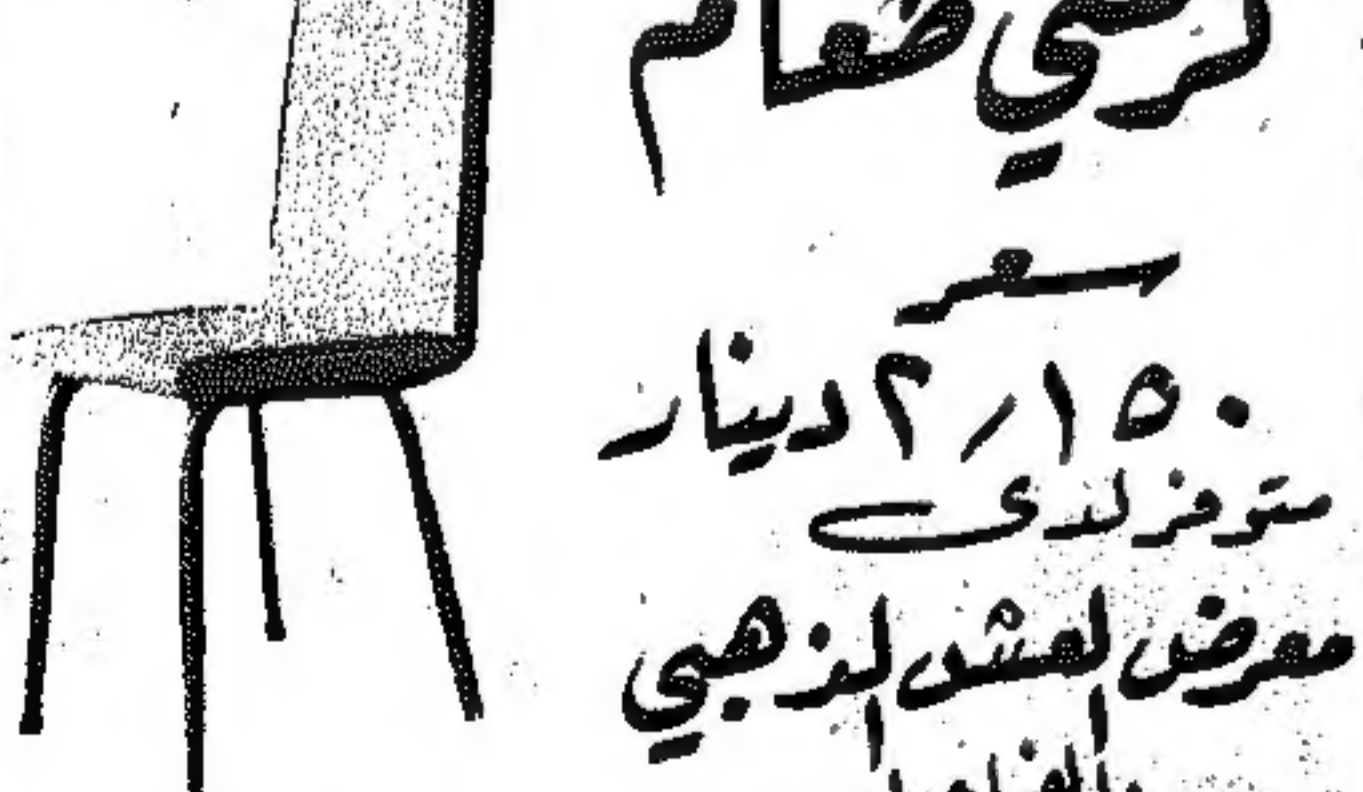 كرسي طعام
سعر
٢٫١٥٠ دينار
متوفر لدى
معرض العش الذهبي